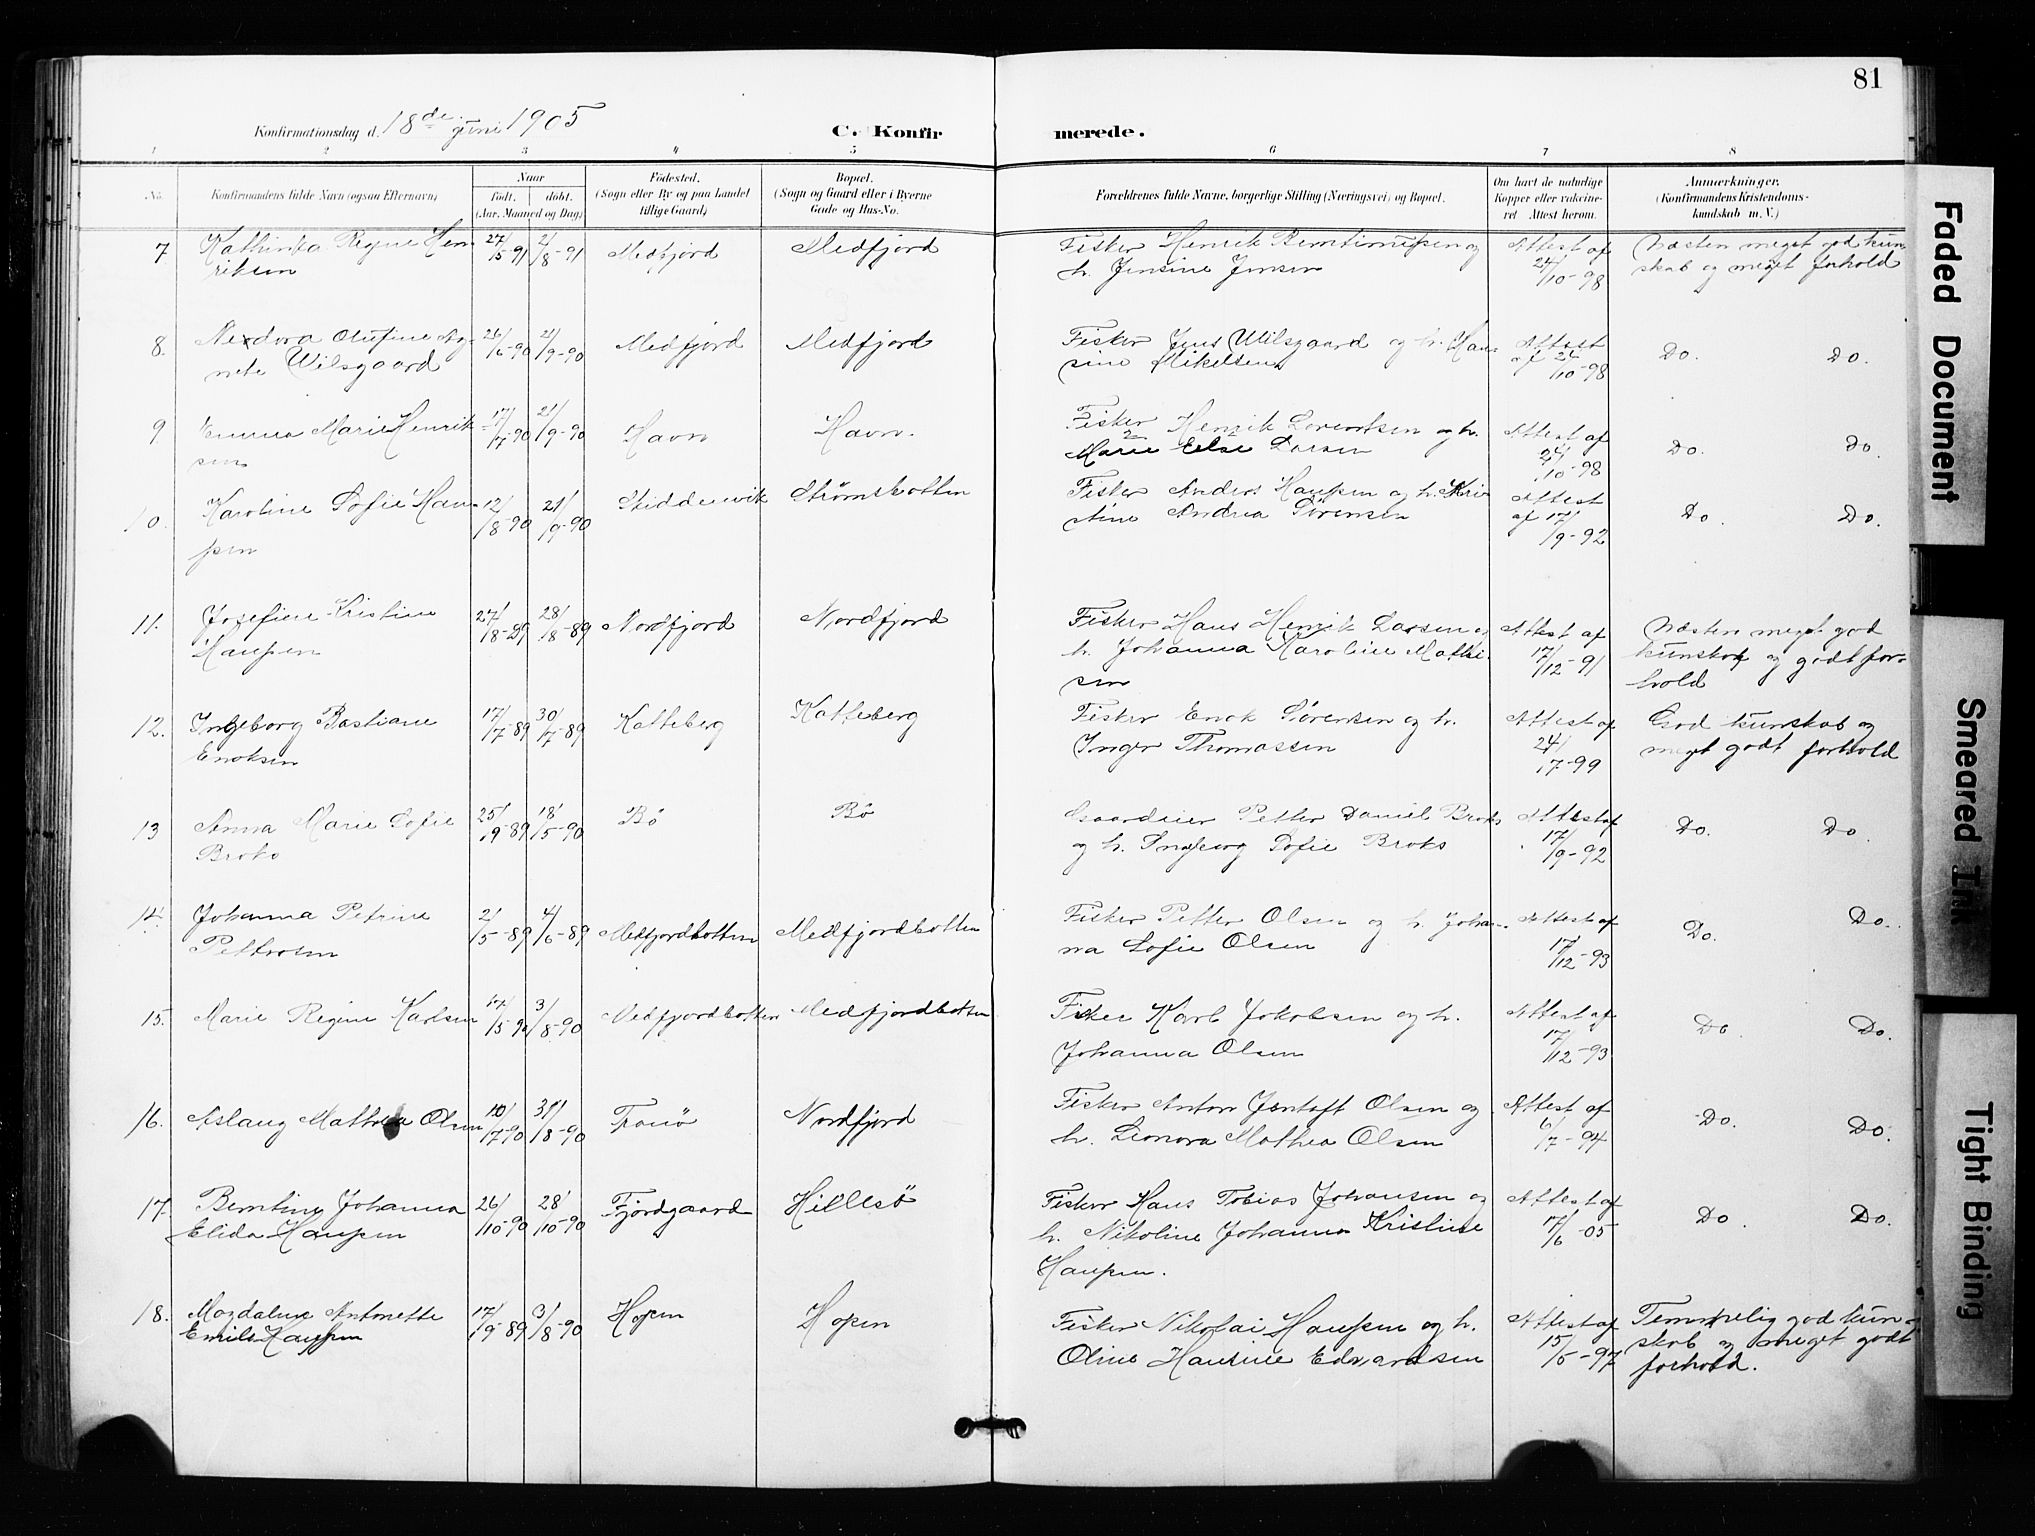 81
Konfirmationsdag d. 18de juni 1905
C. Konfirmerede.
1 2 3 4 5 6 7 8
No.
Konfirmandens fulde Navn (ogsaa Efternavn)
Naar
födt. döbt.
(Aar, Maaned og Dag)
Födested.
(Sogn eller By og paa Landet
tillige Gaard)
Bopæl.
(Sogn og Gaard eller i Byerne
Gade og Hus-No.
Forældrenes fulde Navne, borgerlige Stilling (Næringsvei) og Bopæl.
Om havt de naturlige
Kopper eller vakcine-
ret Attest herom.
Anmærkninger.
(Konfirmandens Kristendoms-
kundskab m. V.)
7 Kathinka Regine Hen-
riksen
27/5-91 2/8-91 Medfjord Medfjord
Fisker Henrik Berntinussen og
h. Jensine Jensen
Attest af
24/10-98
Næsten meget god kun-
skab og meget forhold
8. Olufine Ag-
nete Wilsgaard
26/6-90 21/9-90 Medfjord Medfjord
Fisker Jens Wilsgaard og h. Han-
sine Mikelsen
Attest
af 24/10-98
Do. Do.
9 Emma Marie Henrik
sen
17/7-90 21/9-90 Havn Havn.
Fisker Henrik Lorentsen og h.
Marie Else Larsen
Attest af
24/10-98
Do. Do.
10. Karoline Sofie Han-
sen
12/8-90 21/9-90 Strømsbotten
Fisker Anders Hansen og h. Kri
stine Andrea Sørensen
Attest
af 17/9-92
Do. Do.
11. Josefine Kristine
Hansen
27/8-89 28/8-89 Nordfjord Nordfjord
Fisker Hans Henrik Larsen og
h. Johanna Karoline Mathi-
sen
Attest af
17/12-91
Næsten meget god
kunskab og godt for-
hold
12. Ingeborg Bastiane
Enoksen
17/7-89 30/7-89 Katteberg Katteberg
Fisker Enok Sørensen og h.
Inger Thomassen
Attest af
24/7-99
God kunskab og
meget godt forhold
13 Anna Marie Sofie
Broks
25/9-89 18/5-90 Bö Bö
Gaardeier Petter Daniel Broks
og h. Ingeborg Sofie Broks
Attest af
17/9-92
Do. Do.
14. Johanna Petrine
Pettersen
2/5-89 4/6-89 Medfjordbotten Medfjordbotten
Fisker Petter Olsen og h. Johan-
na Sofie Olsen
Attest af
17/12-93
Do. Do.
15. Marie Regine Karlsen
14/5-90 3/8-90 Medfjordbotten Medfjordbotten
Fisker Karl Jokobsen og h.
Johanna Olsen
Attest af
17/12-93
Do. Do.
16. Aslaug Mathea Olsen
10/7-90 31/8-90 Tranö Nordfjord
Fisker Anton Jentoft Olsen og
h. Leonora Mathea Olsen
Attest af
6/7-94
Do. Do.
17. Berntine Johanna
Elida Hansen
26/10-90 28/10-90 Fjordgaard Hillesö
Fisker Hans Tobias Johansen og
h. Nikoline Johanna Kristine
Hansen.
Attest af
17/6-05
Do. Do.
18. Magdalene Antonette
Emilie Hansen
17/9-89 3/8-90 Hopen Hopen
Fisker Nikolai Hansen og h.
Oline Hansine Edvardsen
Attest af
15/5-97
Temmelig god kun-
skab og meget godt
forhold.
Faded Document
Smeared Ink
Tight Binding